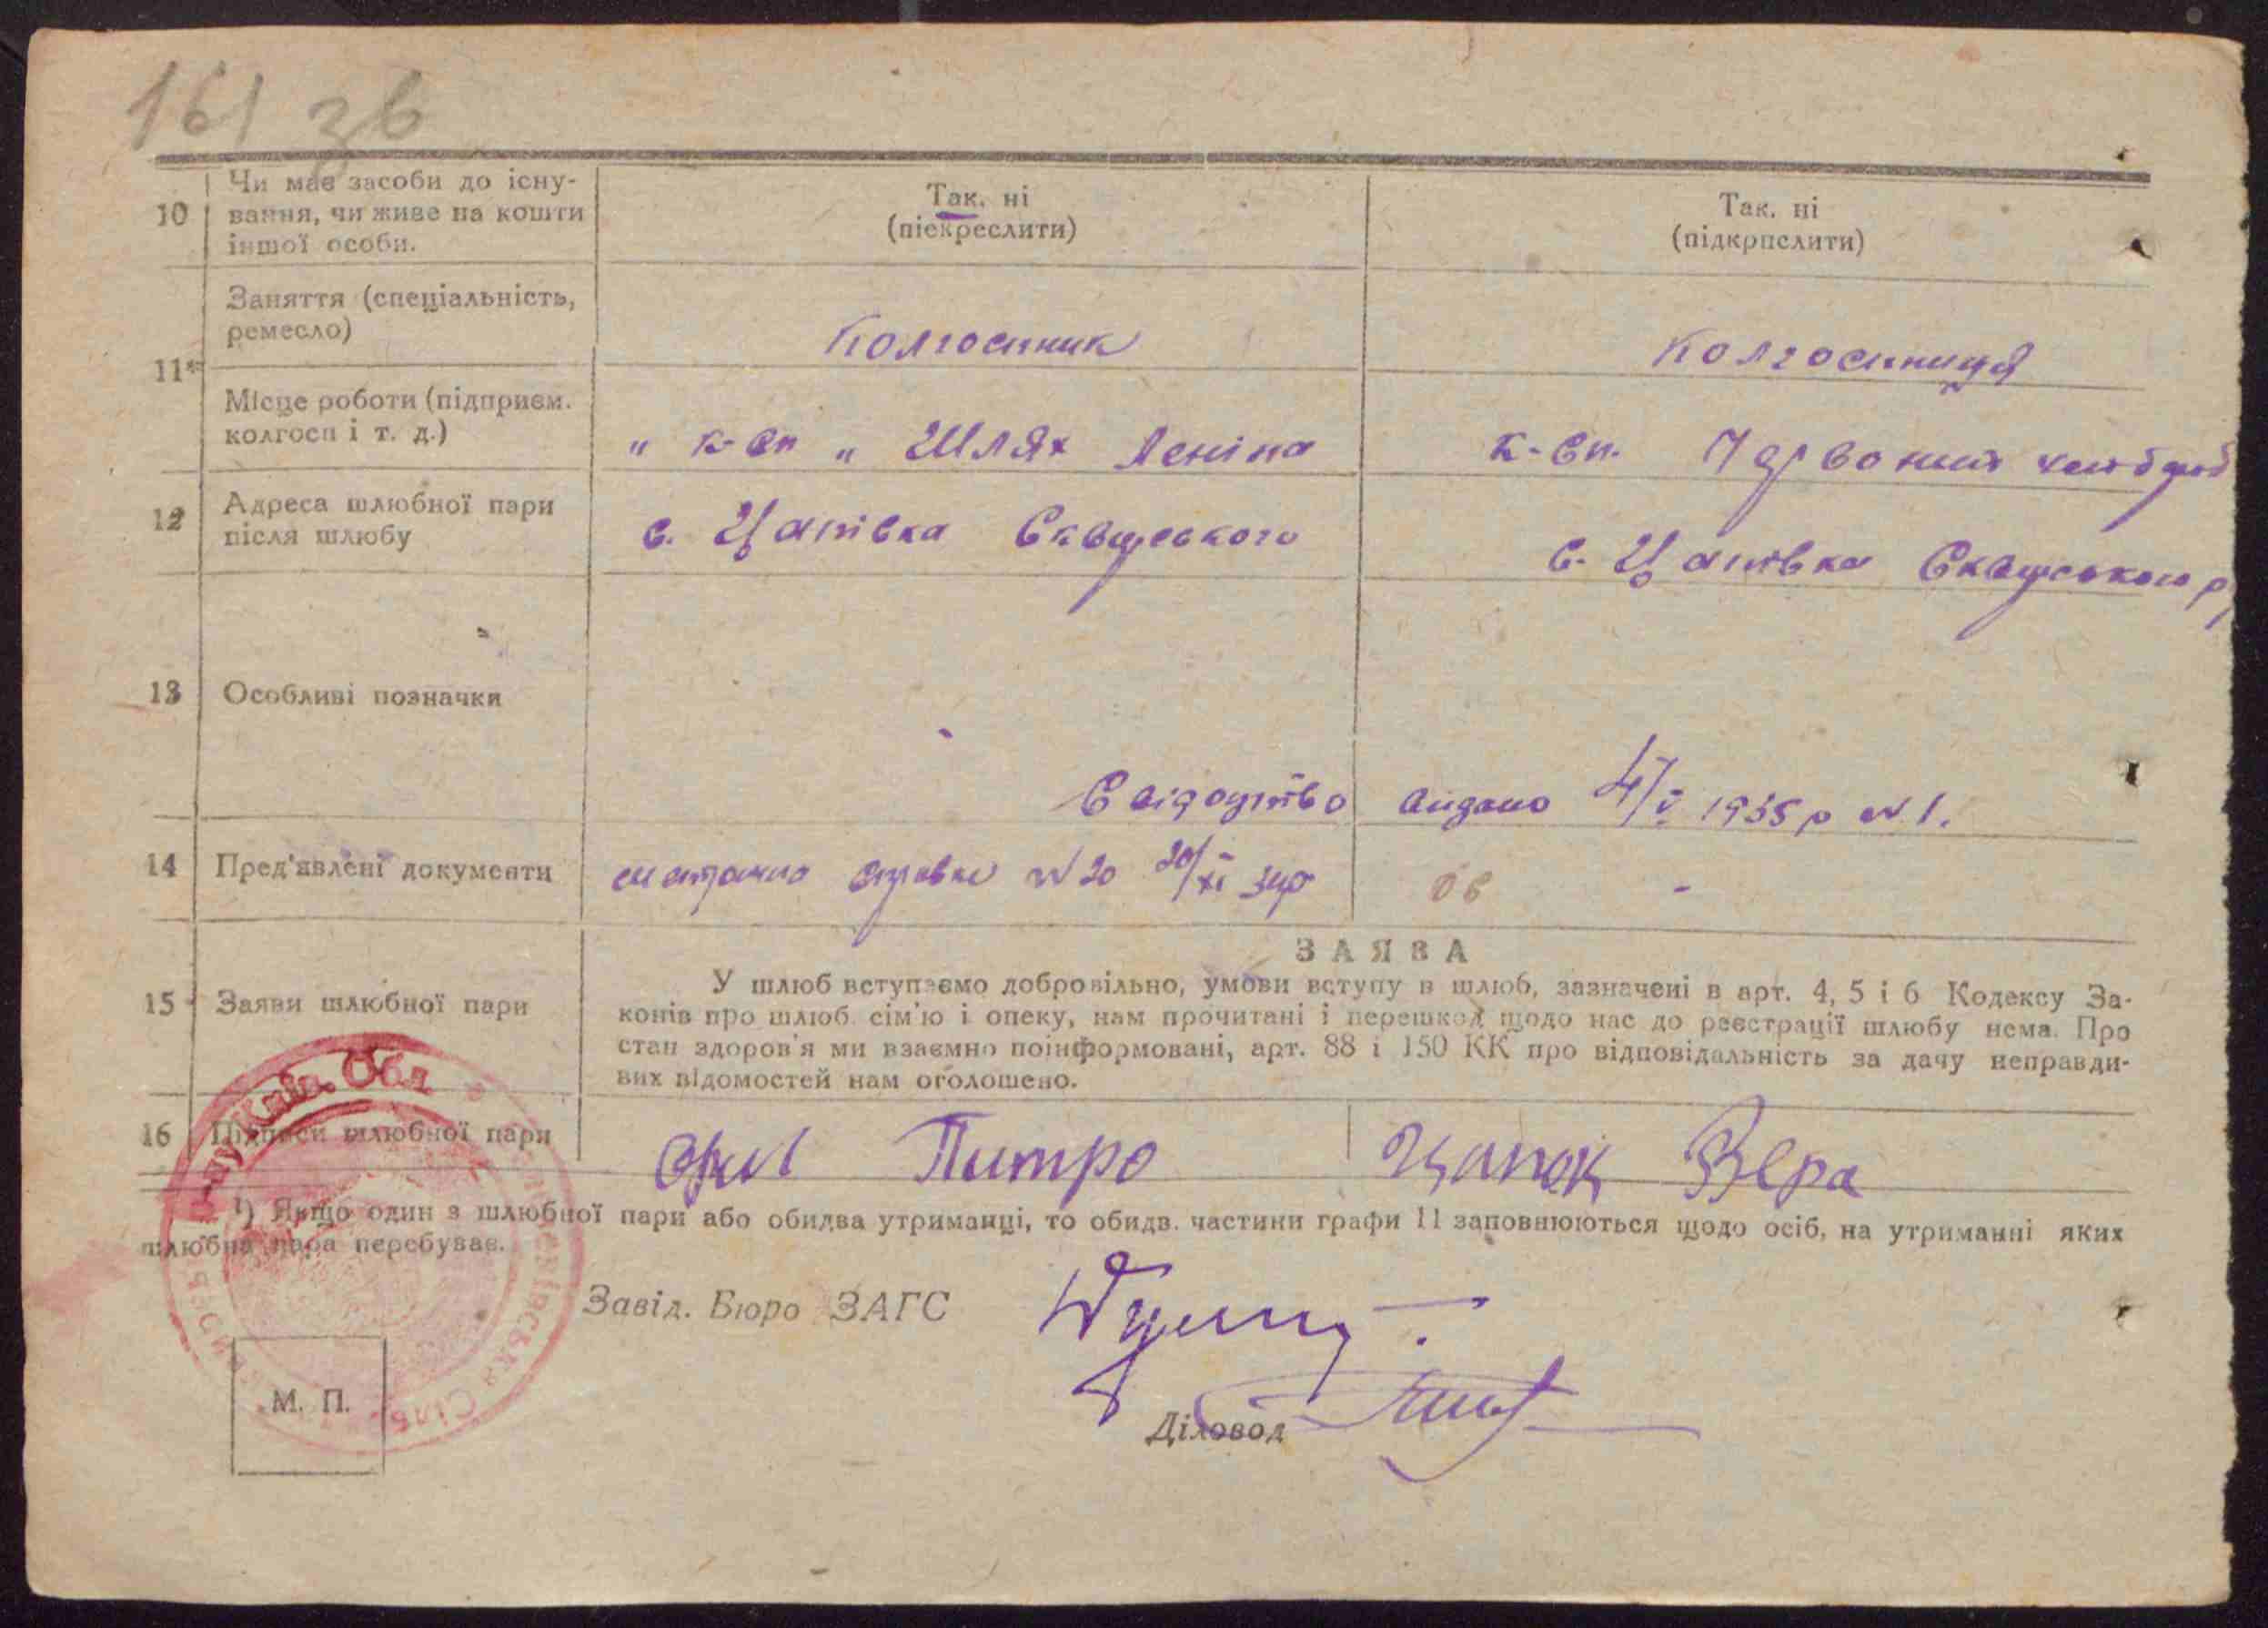 161 зв
10 Чи має засоби до існу-
вання, чи живе на кошти
іншої особи.
Так, ні
(піекреслити)
Так, ні
(підкрпслити)
11*
Заняття (спеціальність,
ремесло)
Колгоспник
Колгоспниця
Місце роботи (підприєм.
колгосп і т. д.)
" к-сп " Шлях Леніна
к-сп. Червоний
12 Адреса шлюбної пари
після шлюбу
с. Цапівка Сквирського
с. Цапівка Сквирського р
13 Особливі позначки
Свідоцтво видано 4/V 1935 р № 1.
14 Пред'явлені документи
справка № 20 20/XI
15 Заяви шлюбної пари
ЗАЯВА
У шлюб вступаємо добровільно, умови вступу в шлюб, зазначені в арт. 4, 5 і 6 Кодексу За-
конів про шлюб. сім'ю і опеку, нам прочитані і перешкод щодо нас до реєстрації шлюбу нема. Про
стан здоров'я ми взаємно поінформовані, арт. 88 і 150 КК про відповідальність за дачу неправди-
вих відомостей нам оголошено.
16 Підписи шлюбної пари
Питро
Цапок Вера
¹) Якщо один з шлюбної пари або обидва утриманці, то обидв. частини графи 11 заповнюються щодо осіб, на утриманні яких
шлюбна пара перебуває.
Київ. Обл
Завід. Бюро ЗАГС
Діловод
М. П.